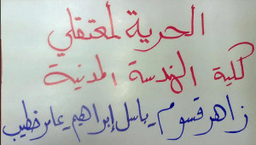 الحرية لمعتقلي
كلية الهندسة المدنية
زاهر قسوم - باسل إبراهيم - عامر خطيب